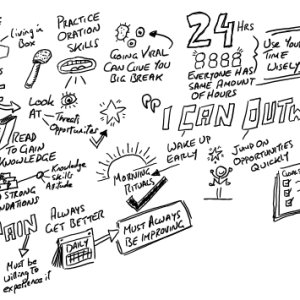 Living in
Box
PRACTICE
ORATION
SKILLS
GOING VIRAL
CAN GIVE YOU
BIG BREAK
24 HRS
EVERYONE HAS
SAME AMOUNT
OF HOURS
USE YOUR
TIME
WISELY
LOOK
AT
Threats
Opportunities
I CAN OUTW
READ
TO GAIN
KNOWLEDGE
Knowledge
Skills
Attitude
STRONG
NDATIONS
MORNING
RITUALS
WAKE UP
EARLY
JUMP ON
OPPORTUNITIES
QUICKLY
GOALS
PAIN
Must be
willing to
experience it
ALWAYS
GET BETTER
DAILY
MUST ALWAYS
BE IMPROVING